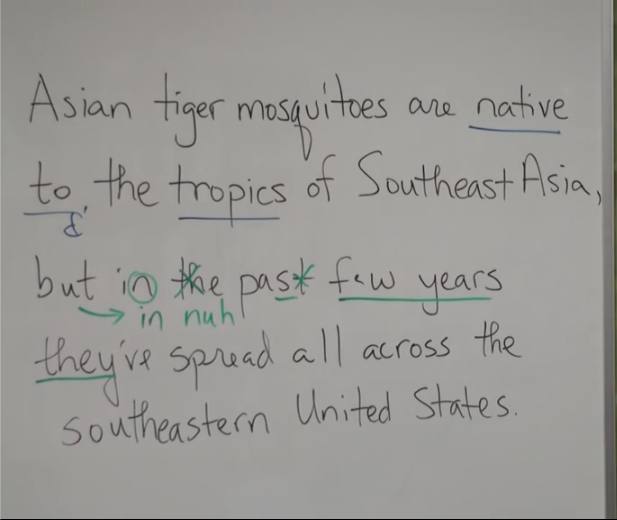 Asian tiger mosquitoes are native
to the tropics of Southeast Asia,
d
but in the past few years
in nuh
they've spread all across the
southeastern United States.